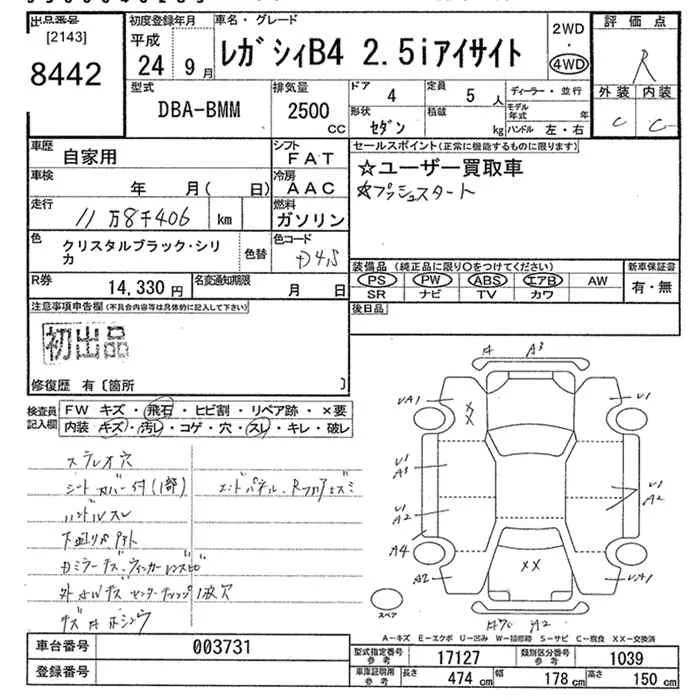 出品番号
[2143]
8442
初度登録年月
平成
24年 9月
車名・グレード
レガシィB4 2.5iアイサイト
2WD
・
4WD
評価点
R
外装 内装
C C
型式
DBA-BMM
排気量
2500 CC
ドア 4
定員 5人
形状 セダン
積載 kg
ディーラー・並行
モデル年式 年
ハンドル 左・右
車歴 自家用
シフト FAT
車検 年 月( 日)
冷房 AAC
走行 11万8千406 km
燃料 ガソリン
色 クリスタルブラック・シリカ
色替
色コード D4S
R券 14,330円
名変通知期限 月 日
セールスポイント(正常に機能するものに限ります)
☆ユーザー買取車
☆プッシュスタート
装備品(純正品に限り○をつけてください)
新車保証書
PS PW ABS エアB AW
SR ナビ TV カワ
有・無
後日品
注意事項申告欄(不具合内容等は具体的に記入して下さい)
初出品
修復歴 有〔箇所 〕
検査員記入欄
FW キズ・飛石・ヒビ割・リペア跡・×要
内装 キズ・汚レ・コゲ・穴・スレ・キレ・破レ
ステレオ穴
シートカバー付(1部)
エンドパネル、Rフロアヒズミ
ハンドルスレ
下廻りサビ
ミラーキズ、ウィンカーレンズヒビ
キズ
A A3
UA1 XX U1
U1
A3
U1
A2
A2
A4
A2 XX UA1
A2
スペア
A-キズ E-エクボ U-凹み W-補修跡 S-サビ C-腐食 XX-交換済
車台番号 003731
登録番号
型式指定番号 参考 17127
類別区分番号 参考 1039
車庫証明用 参考
長さ 474 cm
幅 178 cm
高さ 150 cm